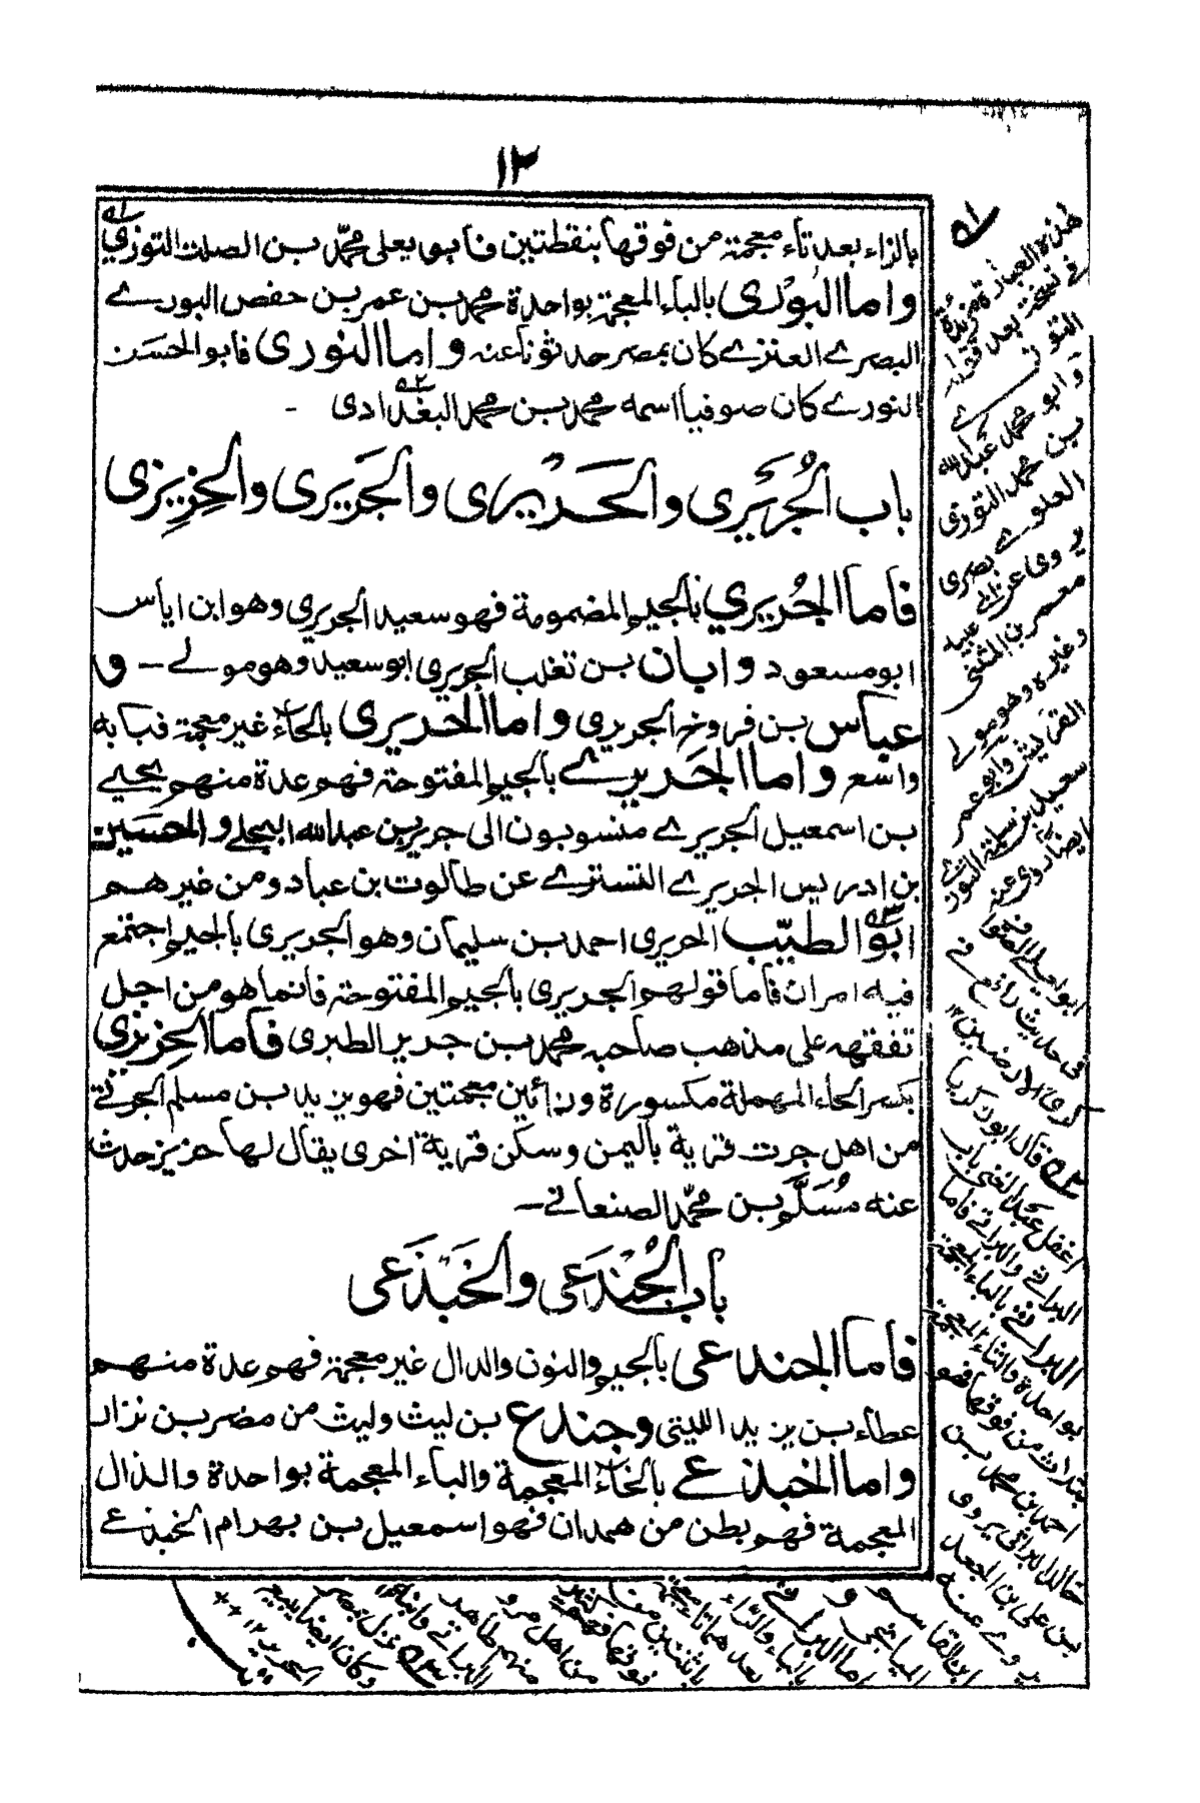 ١٢
بالزاء بعد تاء معجمة من فوقها بنقطتين فابو يعلى محمّد بن الصلت التوزي
واما البُوْرى بالباء المعجمة بواحدة محمد بن عمر بن حفص البورے
البصرے العنزے كان بمصر حدثونا عنه واما النورى فابو الحسَن
النورے كان صوفياً اسمه محمد بن محمد البغدادى -
باب الجُرَيرى والحَريرى والجَريرى والحِزِيزى
فاما الجُريري بالجيم المضمومة فهو سعيد الجريري وهو ابن اياس
ابو مسعود وابان بن تغلب الجريري ابو سعيد وهو مولے – و
عباس بن فروخ الجريري واما الحريرى بالحاء غير معجمة فبابه
واسع واما الجَريرے بالجيم المفتوحة فهم عدة منهم يحيے
بن اسمعيل الجريرے منسوبون الى جرير بن عبدالله البجلے والحسين
بن ادريس الجريرے التسترے عن طالوت بن عباد ومن غيرهم
ابو الطيّب الجريرى احمد بن سليمان وهو الجريرى بالجيم اجتمع
فيه امران فاما قولهم الجريرى بالجيم المفتوحة فانما هو من اجل
تفقهه على مذهب صاحبه محمد بن جرير الطبرى فاما الحِزِيزى
بكسر الحاء المهملة مكسورة وزائين معجمتين فهو يزيد بن مسلم الجرتے
من اهل جرت قرية باليمن وسكن قرية اخرى يقال لها حزيز حدث
عنه مُسَلَّم بن محمّد الصنعانے –
باب الجُنْدَعى والخَبْذَعى
فاما الجندعى بالجيم والنون والدال غير معجمة فهم عدة منهم
عطاء بن يزيد الليثى وجندع بن ليث وليث من مضر بن نزار
واما الخبذعے بالخاء المعجمة والباء المعجمة بواحدة والذال
المعجمة فهو بطن من همدان فهو اسمعيل بن بهرام الخبذعے
هذه العبارة مزيدة
فى نسخة بعد قوله
التوزے
وابو محمد عبدالله
بن محمد التوزى
العلوے بصرى
يروى عن ابى عبيد
معمر بن المثنى
وغيره وهو مولے
القريش وابو عمر
سعيد بن سلمة التوزے
ايضاً روى عنه
قال ابو زكريا
اغفل عبد الغنى باب
البراثے والبراتے فاما
البراثے بالباء المعجمة
بواحدة والثاء المعجمة
بثلاث من فوقها فهو
احمد بن محمد بن
خالد البراثى يروى
عن على بن الجعد